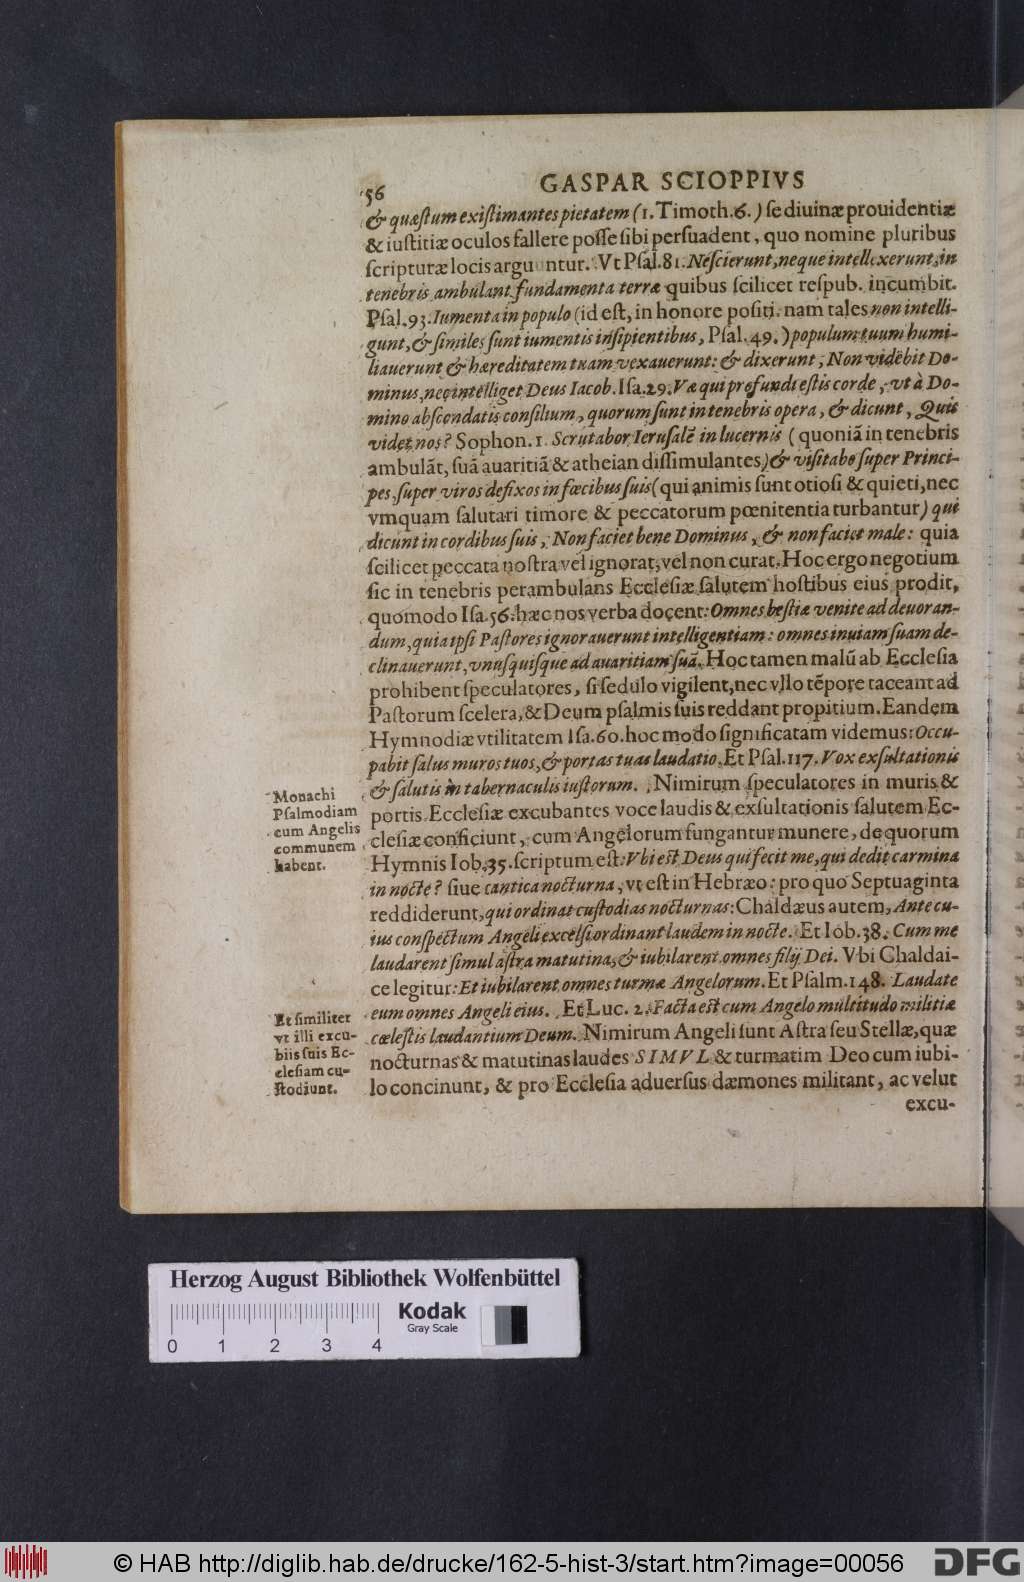 56
GASPAR SCIOPPIVS
& quæſtum exiſtimantes pietatem (1. Timoth. 6.) ſe diuinæ prouidentiæ
& iuſtitiæ oculos fallere poſſe ſibi perſuadent, quo nomine pluribus
ſcripturæ locis arguuntur. Vt Pſal. 81. Neſcierunt, neque intellexerunt, in
tenebris ambulant fundamenta terræ quibus ſcilicet reſpub. incumbit.
Pſal. 93. Iumenta in populo (id eſt, in honore poſiti. nam tales non intelli-
gunt, & ſimiles ſunt iumentis inſipientibus, Pſal. 49.) populum tuum humi-
liauerunt & hæreditatem tuam vexauerunt: & dixerunt, Non vidēbit Do-
minus, nec intelliget Deus Iacob. Iſa. 29. Væ qui profundi eſtis corde, vt à Do-
mino abſcondatis conſilium, quorum ſunt in tenebris opera, & dicunt, Quis
videt nos? Sophon. 1. Scrutabor Ieruſalē in lucernis (quoniā in tenebris
ambulāt, ſuā auaritiā & atheian diſſimulantes) & viſitabo ſuper Princi-
pes, ſuper viros defixos in fæcibus ſuis (qui animis ſunt otioſi & quieti, nec
vmquam ſalutari timore & peccatorum pœnitentia turbantur) qui
dicunt in cordibus ſuis, Non faciet bene Dominus, & non faciet male: quia
ſcilicet peccata noſtra vel ignorat, vel non curat. Hoc ergo negotium
ſic in tenebris perambulans Eccleſiæ ſalutem hoſtibus eius prodit,
quomodo Iſa. 56. hæc nos verba docent: Omnes beſtiæ venite ad deuoran-
dum, quia ipſi Paſtores ignorauerunt intelligentiam: omnes in viam ſuam de-
clinauerunt, vnuſquiſque ad auaritiam ſuā. Hoc tamen malū ab Eccleſia
prohibent ſpeculatores, ſi ſedulo vigilent, nec vllo tēpore taceant ad
Paſtorum ſcelera, & Deum pſalmis ſuis reddant propitium. Eandem
Hymnodiæ vtilitatem Iſa. 60. hoc modo ſignificatam videmus: Occu-
pabit ſalus muros tuos, & portas tuas laudatio. Et Pſal. 117. Vox exſultationis
& ſalutis in tabernaculis iuſtorum. Nimirum ſpeculatores in muris &
portis Eccleſiæ excubantes voce laudis & exſultationis ſalutem Ec-
cleſiæ conficiunt, cum Angelorum fungantur munere, de quorum
Hymnis Iob. 35. ſcriptum eſt: Vbi eſt Deus qui fecit me, qui dedit carmina
in nocte? ſiue cantica nocturna, vt eſt in Hebræo: pro quo Septuaginta
reddiderunt, qui ordinat cuſtodias nocturnas: Chaldæus autem, Ante cu-
ius conſpectum Angeli excelſi ordinant laudem in nocte. Et Iob. 38. Cum me
laudarent ſimul aſtra matutina, & iubilarent omnes filij Dei. Vbi Chaldai-
ce legitur: Et iubilarent omnes turmæ Angelorum. Et Pſalm. 148. Laudate
eum omnes Angeli eius. Et Luc. 2. Facta eſt cum Angelo multitudo militiæ
cœleſtis laudantium Deum. Nimirum Angeli ſunt Aſtra ſeu Stellæ, quæ
nocturnas & matutinas laudes SIMVL & turmatim Deo cum iubi-
lo concinunt, & pro Eccleſia aduerſus dæmones militant, ac velut
excu-
Monachi
Pſalmodiam
cum Angelis
communem
habent.
Et ſimiliter
vt illi excu-
biis ſuis Ec-
cleſiam cu-
ſtodiunt.
Herzog August Bibliothek Wolfenbüttel
Kodak
Gray Scale
0 1 2 3 4
© HAB http://diglib.hab.de/drucke/162-5-hist-3/start.htm?image=00056
DFG